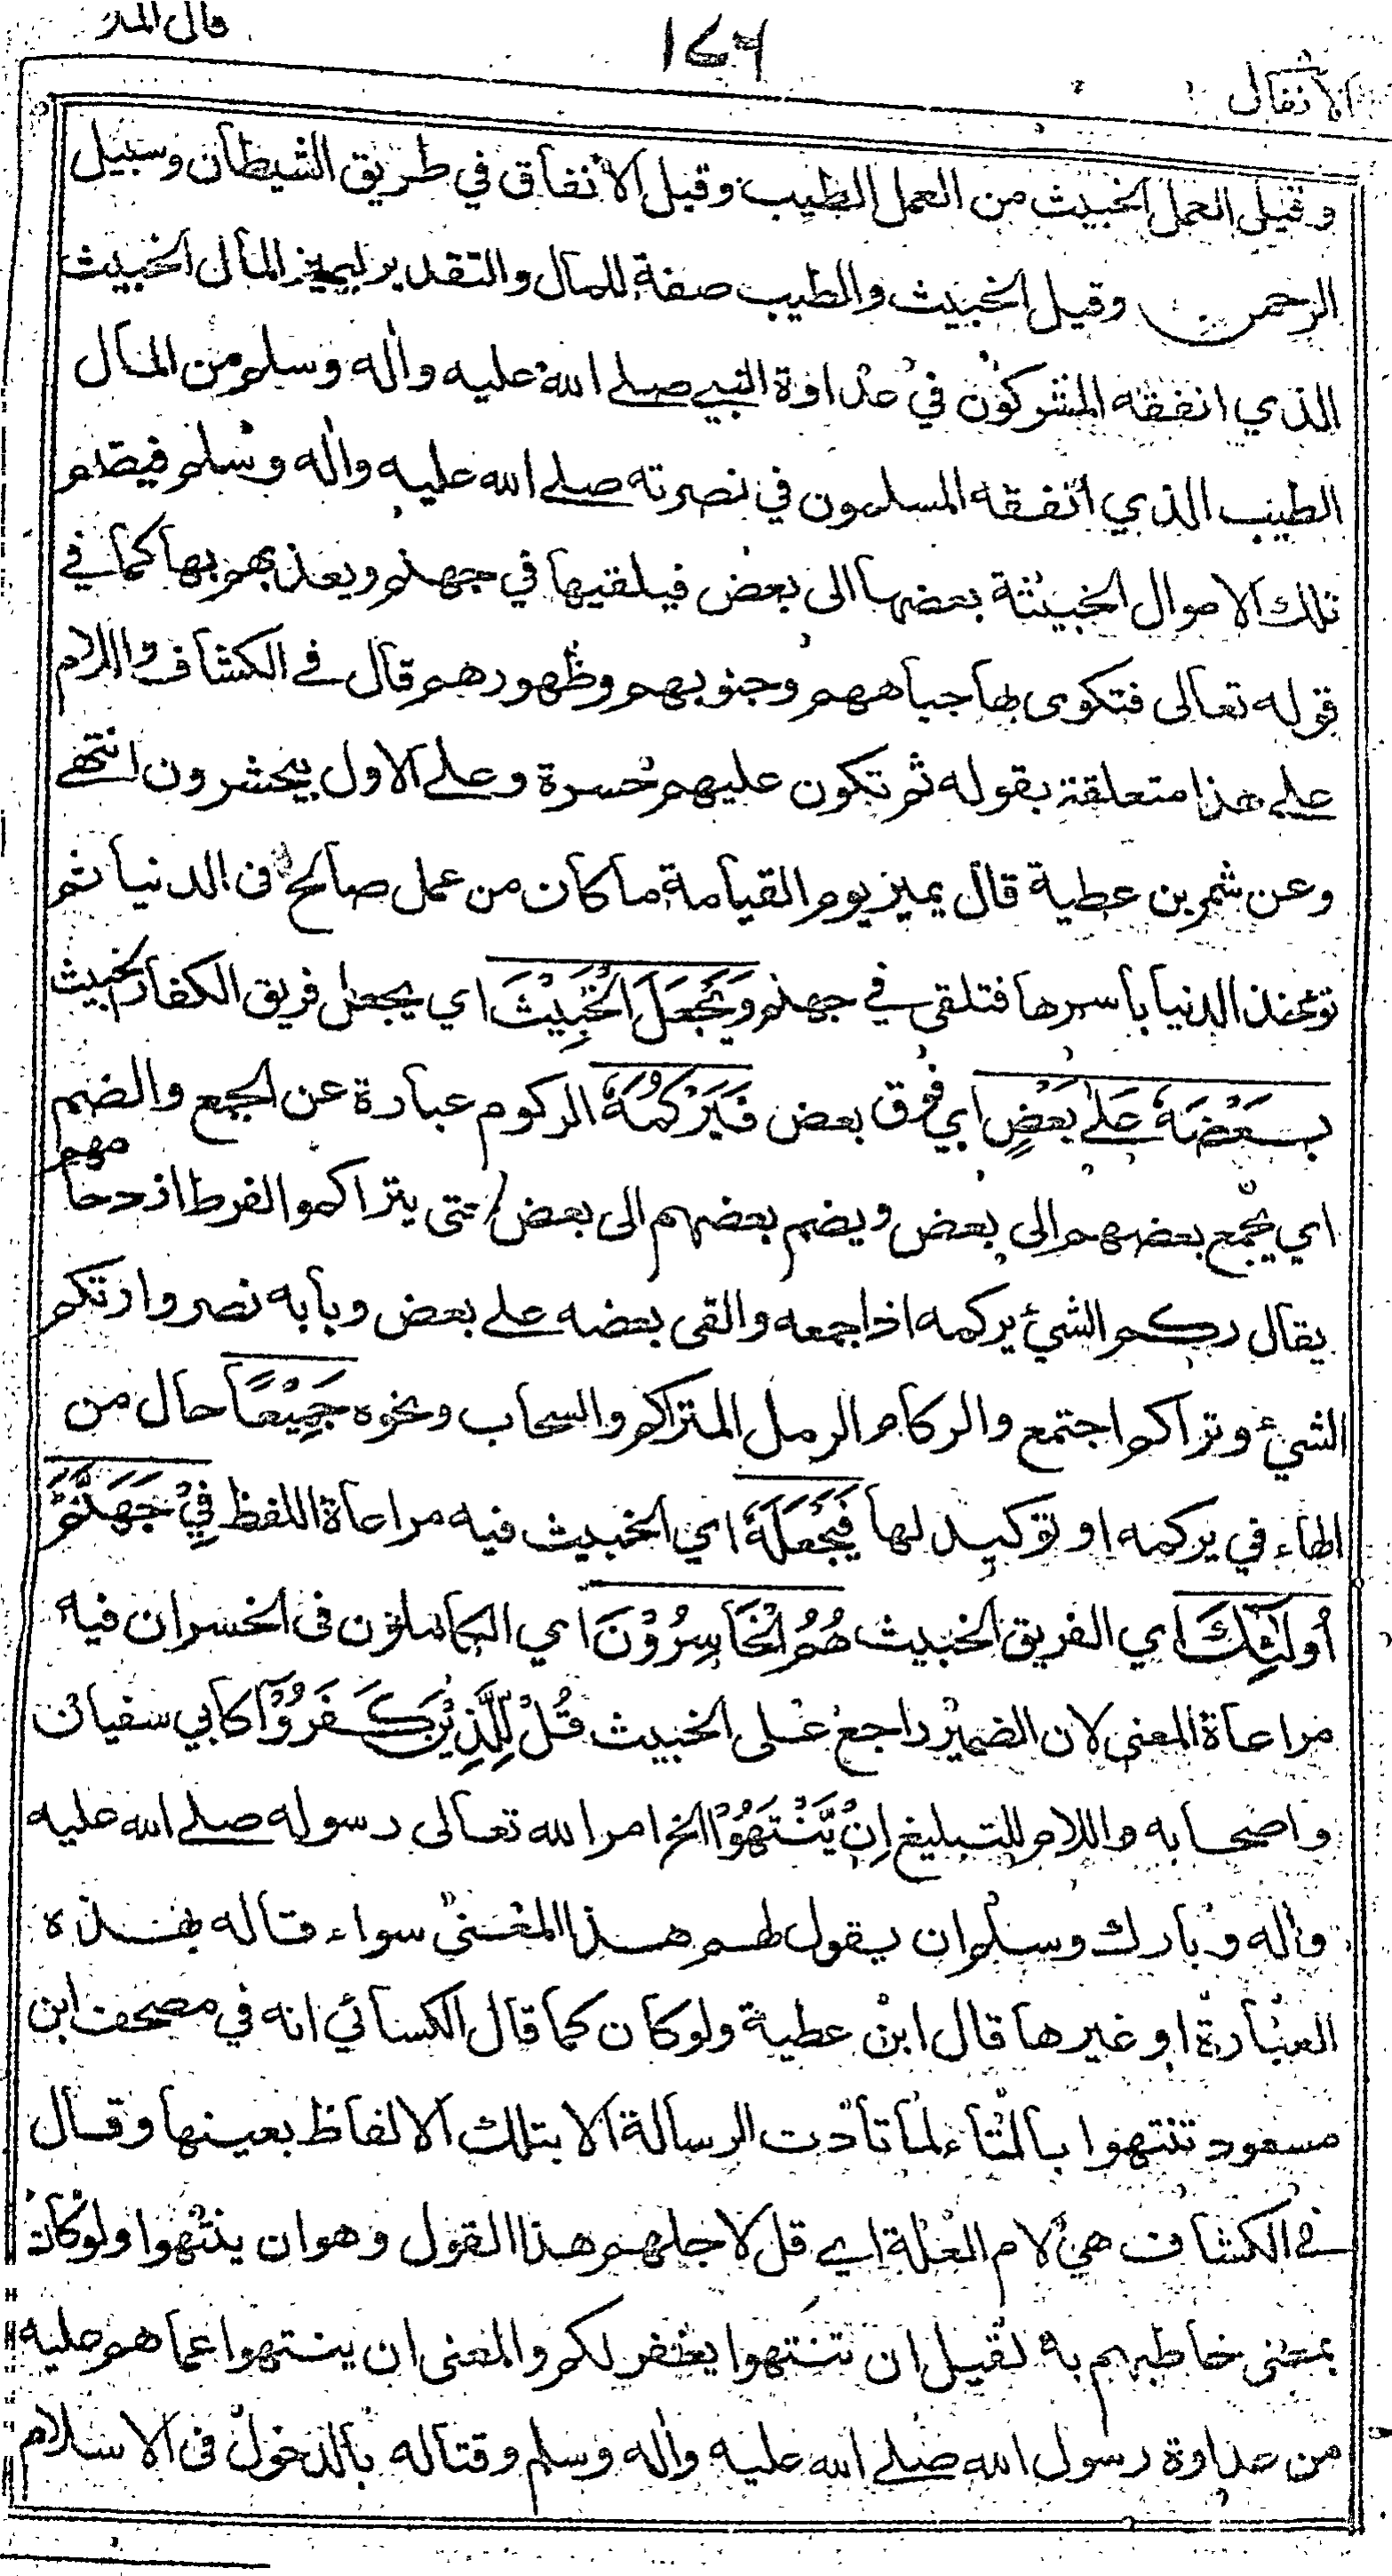 قال الملا
١٧٦
الأنفال
وقيل العمل الخبيث من العمل الطيب وقيل الانفاق في طريق الشيطان وسبيل
الرحمن وقيل الخبيث والطيب صفة للمال والتقدير ليميز المال الخبيث
الذي انفقه المشركون في عداوة النبي صلى الله عليه واٰله وسلم من المال
الطيب الذي أنفقه المسلمون في نصرته صلى الله عليه واٰله وسلم فيضم
تلك الاموال الخبيثة بعضها الى بعض فيلقيها في جهنم ويعذبهم بها كما في
قوله تعالى فتكوى بها جباههم وجنوبهم وظهورهم قال في الكشاف واللام
على هذا متعلقة بقوله ثم تكون عليهم حسرة وعلى الاول بيحشرون انتهى
وعن شمر بن عطية قال يميز يوم القيامة ما كان من عمل صالح في الدنيا ثم
تؤخذ الدنيا باسرها فتلقى في جهنم وَيَجْعَلَ الْخَبِيْثَ اي يجعل فريق الكفار الخبيث
بَعْضَهٗ عَلٰى بَعْضٍ اي فوق بعض فَيَرْكُمَهٗ الركوم عبارة عن الجمع والضم
اي يجمع بعضهم الى بعض ويضم بعضهم الى بعض حتى يتراكموا لفرط ازدحامهم
يقال ركم الشيء يركمه اذا جمعه والقى بعضه على بعض وبابه نصر وارتكم
الشيء وتراكم اجتمع والركام الرمل المتراكم والسحاب ونحوه جَمِيْعًا حال من
الهاء في يركمه او توكيد لها فَيَجْعَلَهٗ اي الخبيث فيه مراعاة اللفظ فِيْ جَهَنَّمَ
أُولٰئِكَ اي الفريق الخبيث هُمُ الْخَاسِرُوْنَ اي الكاملون في الخسران فيه
مراعاة المعنى لان الضمير راجع على الخبيث قُلْ لِّلَّذِيْنَ كَفَرُوْآ كابي سفيان
واصحابه واللام للتبليغ اِنْ يَّنْتَهُوْا الخ امر الله تعالى رسوله صلى الله عليه
واٰله وبارك وسلم ان يقول لهم هذا المعنى سواء قاله بهذه
العبارة او غيرها قال ابن عطية ولو كان كما قال الكسائي انه في مصحف ابن
مسعود تنتهوا بالتاء لما تأدت الرسالة الا بتلك الالفاظ بعينها وقال
في الكشاف هي لام العلة اي قل لاجلهم هذا القول وهو ان ينتهوا ولو كان
بمعنى خاطبهم به لقيل ان تنتهوا يغفر لكم والمعنى ان ينتهوا عما هم عليه
من عداوة رسول الله صلى الله عليه واٰله وسلم وقتاله بالدخول في الاسلام